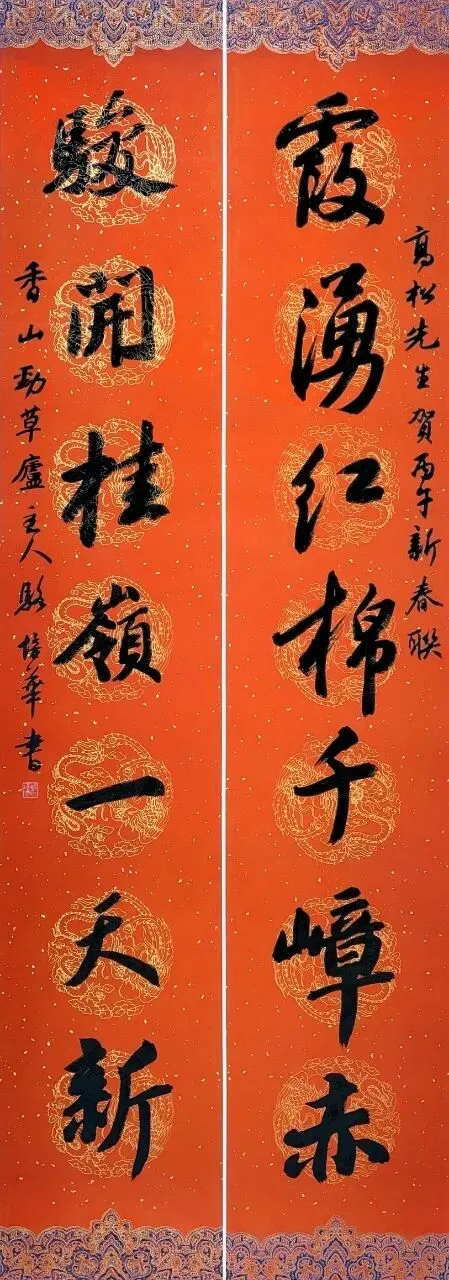 霞湧红棉千嶂赤
高松先生贺丙午新春联
駿開桂嶺一天新
香山劲草廬主人駱培華書